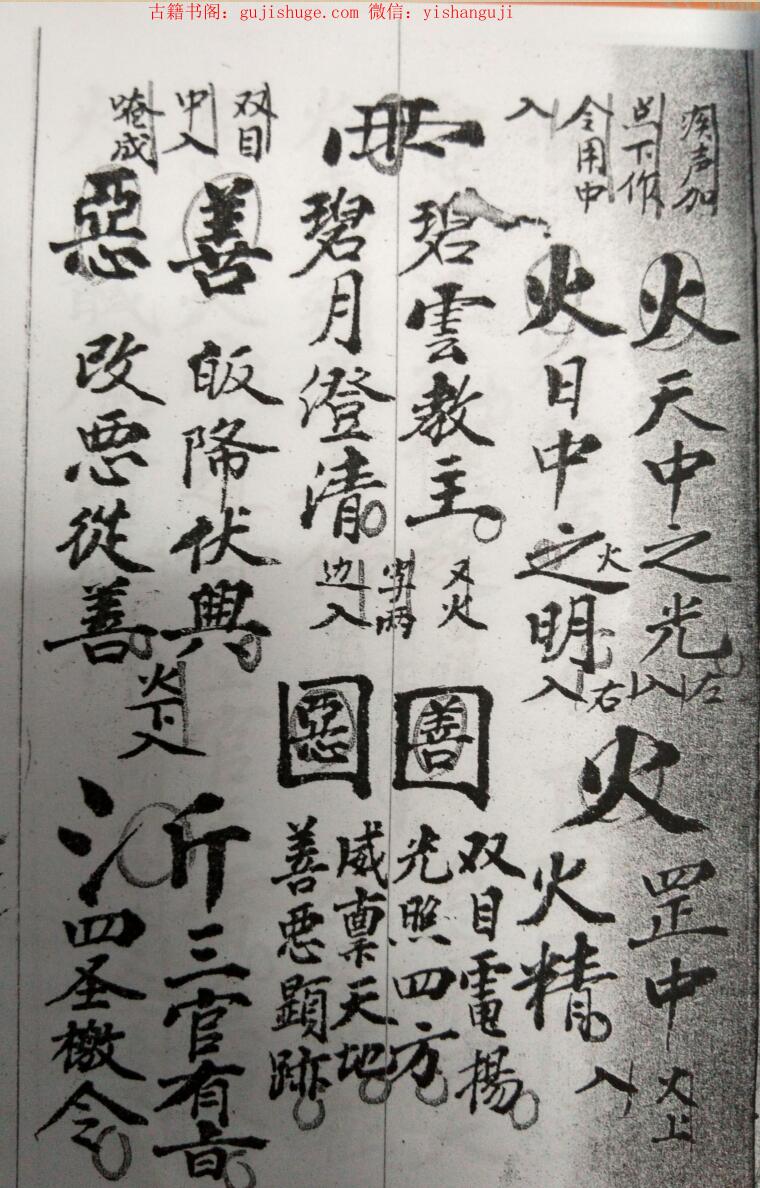 古籍书阁：gujishuge.com 微信：yishanguji
疾声加
点下作
令用中
入
火 天中之光
左入
火 日中之明
火
右入
火 罡中
火精
火上
入
碧雲教主
碧月澄清
又火
字兩
边入
善
双目電揚
光照四方
惡
威稟天地
善恶顕跡
双目
中入
唵成
善 皈降伏典
惡 改恶從善
火下入
斤 三官有旨
氵 四圣檄令